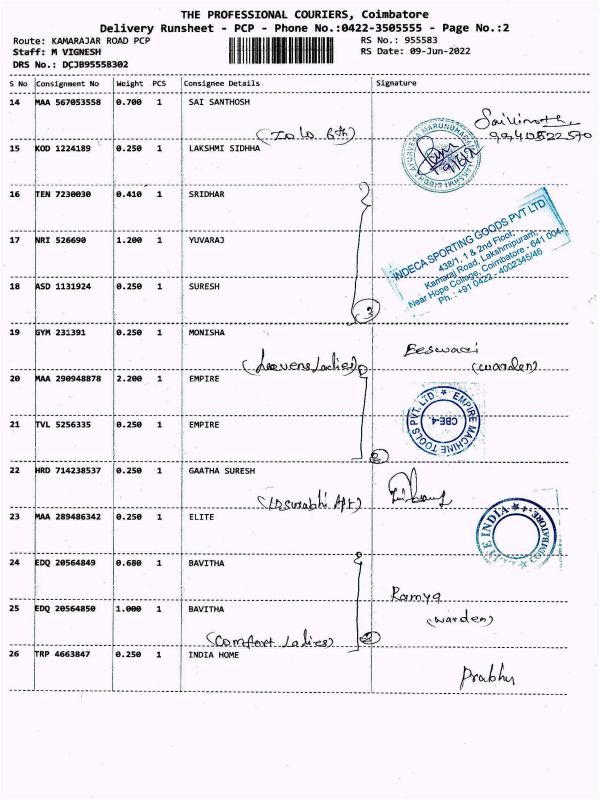 THE PROFESSIONAL COURIERS, Coimbatore
Delivery Runsheet - PCP - Phone No.:0422-3505555 - Page No.:2
Route: KAMARAJAR ROAD PCP RS No.: 955583
Staff: M VIGNESH RS Date: 09-Jun-2022
DRS No.: DCJB95558302
S No Consignment No Weight PCS Consignee Details Signature
14 MAA 567053558 0.700 1 SAI SANTHOSH
15 KOD 1224189 0.250 1 LAKSHMI SIDHHA
16 TEN 7230030 0.410 1 SRIDHAR
17 NRI 526690 1.200 1 YUVARAJ
INDECA SPORTING GOODS PVT LTD
438/1, 1 & 2nd Floor,
Kamaraj Road, Lakshmipuram,
Near Hope College, Coimbatore - 641 004
Ph.: +91 0422 - 4002345/46
18 ASD 1131924 0.250 1 SURESH
3
19 GYM 231391 0.250 1 MONISHA
Eeswari
(warden)
20 MAA 290948878 2.200 1 EMPIRE
EMPIRE MACHINE TOOLS PVT. LTD.
CBE-4.
21 TVL 5256335 0.250 1 EMPIRE
2
22 HRD 714238537 0.250 1 GAATHA SURESH
23 MAA 289486342 0.250 1 ELITE
INDIA
24 EDQ 20564849 0.680 1 BAVITHA
Ramya
(warden)
25 EDQ 20564850 1.000 1 BAVITHA
(Comfort Ladies) 2
26 TRP 4663847 0.250 1 INDIA HOME
Prabhu